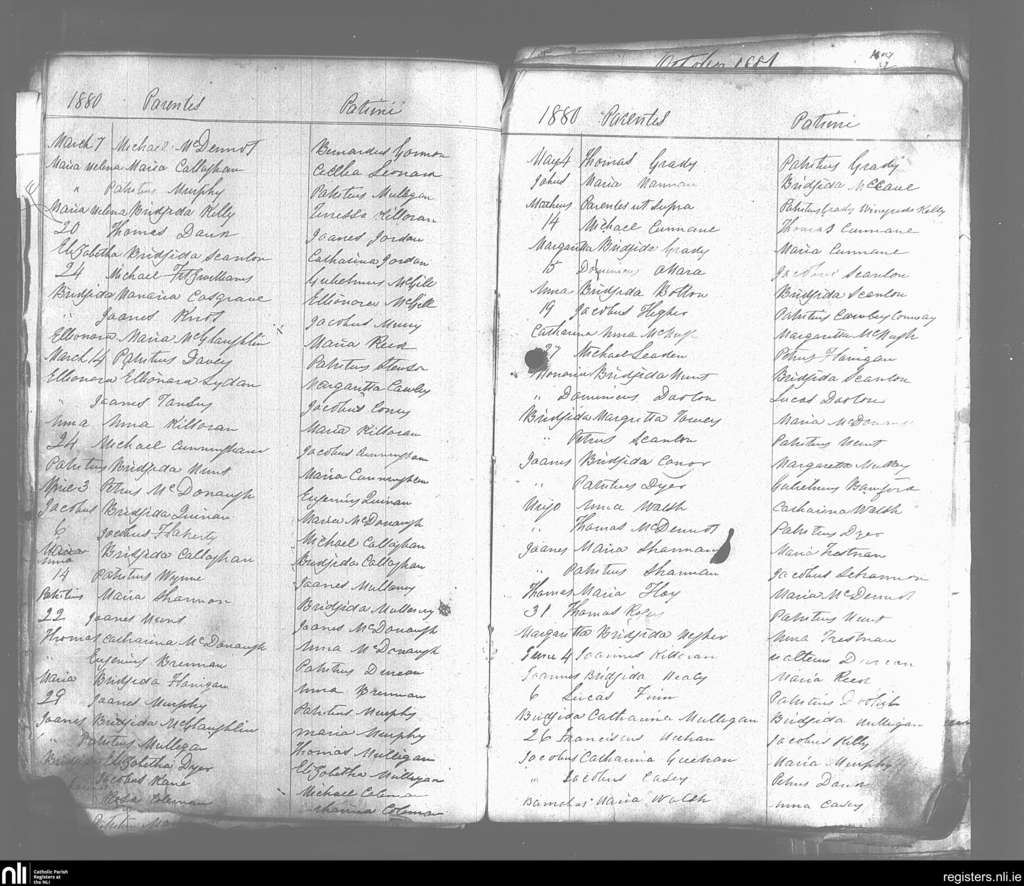 October 1881
1880 Parentes Patrini
March 7 Michael McDermot Bernardus Gormon
Maria Helena Maria Callaghan Cellia Leonard
" Patritius Murphy Patritius Mulligan
Maria Helena Bridgida Kelly Teressa Killoran
20 Thomas Joanes Jordan
Elizabetha Bridgida Scanlon Catharina Jordan
24 Michael Fitzwilliams Gulielmus McGill
Bridgida Cosgrave Ellionora McGill
" Joanes Knot Jacobus
Ellionora Maria McGlaughlin Maria Reed
March 14 Patritius Davey Patritius
Ellionora Ellionora Lydan Margaritta Cawley
" Joanes Tansey Jacobus Coney
Anna Anna Killoran Maria Killoran
24 Michael Cunningham Jacobus Cunningham
Patritius Bridgida Hunt Maria Cunningham
April 3 Petrus McDonaugh Eugenius Quinan
Jacobus Bridgida Quinan Maria McDonaugh
6 Jacobus Flaherty Michael Callaghan
Maria Anna Bridgida Callaghan Bridgida Callaghan
14 Patritius Wynne Joanes Mullaney
Patritius Maria Shannon Bridgida Mullaney
22 Joanes Hunt Joanes McDonaugh
Thomas Catharina McDonaugh Anna McDonaugh
" Eugenius Brennan Patritius Duncan
Maria Bridgida Flanigan Anna Brennan
29 Joanes Murphy Patritius Murphy
Joanes Bridgida McGlaughlin Maria Murphy
" Patritius Mulligan Thomas Mulligan
Bridgida Elizabetha Dyer Elizabetha Mulligan
Jacobus Kane Michael Coleman
Rosa Coleman Coleman
1880 Parentes Patrini
May 4 Thomas Grady Patritius Grady
Maria Hannan Bridgida McCane
Matheus Parentes ut Supra Patritius Grady Winefreda Kelly
14 Michael Cunnane Thomas Cunnane
Margaritta Bridgida Grady Maria Cunnane
15 Dominicus OHara Scanlon
Anna Bridgida Bolton Bridgida Scanlon
19 Jacobus Higher Patritius Cawley Conway
Catharina Anna McHugh Margaritta McHugh
27 Michael Leaden Petrus Flanigan
Honoria Bridgida Hunt Bridgida Scanlon
" Dominicus Lucas
Bridgida Margritta Maria
" Petrus Scanlon Patritius Hunt
Joanes Bridgida Conor Margaretta
" Patritius Dyer Gulielmus
Anna Walsh Catharina Walsh
" Thomas McDermot Patritius Dyer
Joanes Maria Shannan Maria
" Patritius Shannan Jacobus
Thomas Maria Maria McDermot
31 Thomas Patritius Hunt
Margaritta Bridgida Higher Anna
June 4 Joannes Killoran Duncan
Joannes Bridgida Healy Maria Reed
6 Lucas Finn Patritius
Bridgida Catharina Mulligan Bridgida Mulligan
26 Franciscus Jacobus Kelly
Jacobus Catharina Maria Murphy
" Jacobus Casey Petrus
Maria Walsh Anna Casey
nli
Catholic Parish
Registers at
the NLI
registers.nli.ie